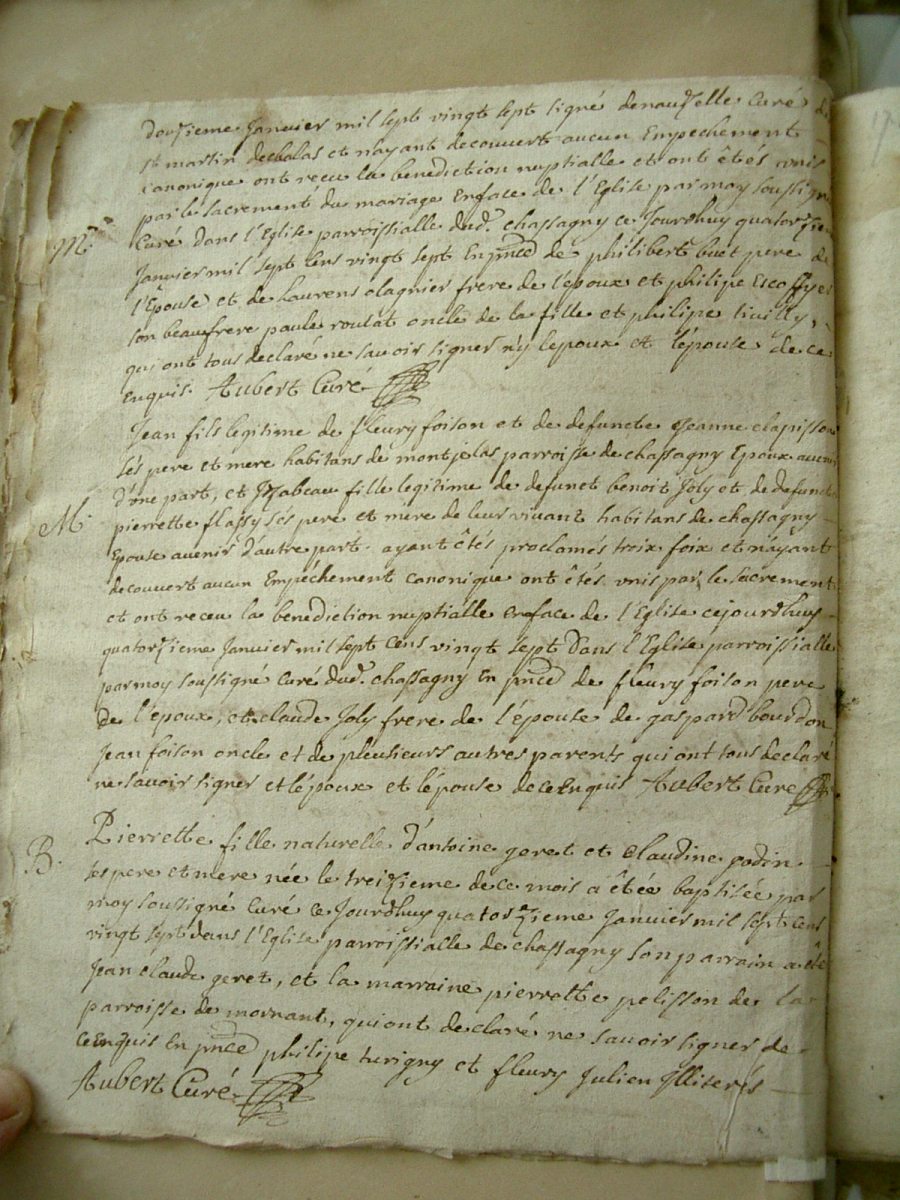 douzieme Janvier mil sept vingt sept signé denauzelle Curé de
st martin decbalas et nayant decouvert aucun Empechement
Canonique ont receu la benediction nuptialle et ont êtés unis
par le sacrement du mariage Enface de l'Eglise par moy soussigné
M.
Curé dans l'Eglise parroissialle dud. chassagny ce Jourdhuy quatorzieme
Janvier mil sept cens vingt sept En pnce de philibert buet pere de
l'Epouse et de Laurens olagnier frere de l'epoux et philipe Escoffyer
son beaufrere paule roulat oncle de la fille et philipe
qui ont tous declaré ne savoir signer n'y lepoux et l'épouse de ce
Enquis. Aubert Curé
Jean fils legitime de fleury foison et de defuncte Jeanne clapisson
sés pere et mere habitans de montjelas parroisse de chassagny Epoux avenir
M.
d'une part, et Izabeau fille legitime de defunct benoit Joly et de defuncte
pierrette flassy sés pere et mere de leur vivant habitans de chassagny
Epouse avenir d'autre part. ayant êtés proclamés troix foix et n'ayant
decouvert aucun Empéchement canonique ont êtés unis par le sacrement
et ont receu la benediction nuptialle enface de l'Eglise cejourdhuy
quatorzieme Janvier mil sept cens vingt sept Dans l'Eglise parroissialle
par moy soussigné Curé dud. chassagny En pnce de fleury foison pere
de l'epoux, et claude Joly frere de l'épouse de gaspard bourdon
Jean foison oncle et de plusieurs autres parents qui ont tous declaré
ne savoir signer et l'époux et l'épouse de ce Enquis Aubert Cure
B.
Pierrette fille naturelle d'antoine geret et Claudine godin
ses pere et mere née le treizieme de ce mois a êtée baptisée par
moy sousigné Curé ce Jourdhuy quatorzieme Janvier mil sept cens
vingt sept dans l'Eglise parroissialle de chassagny son parrain a été
Jean claude geret, et la marraine pierrette pelisson de la
parroisse de mornant, qui ont declaré ne savoir signer de
ce Enquis En pnce philipe turigny et fleury Julien Illiterés
Aubert Curé